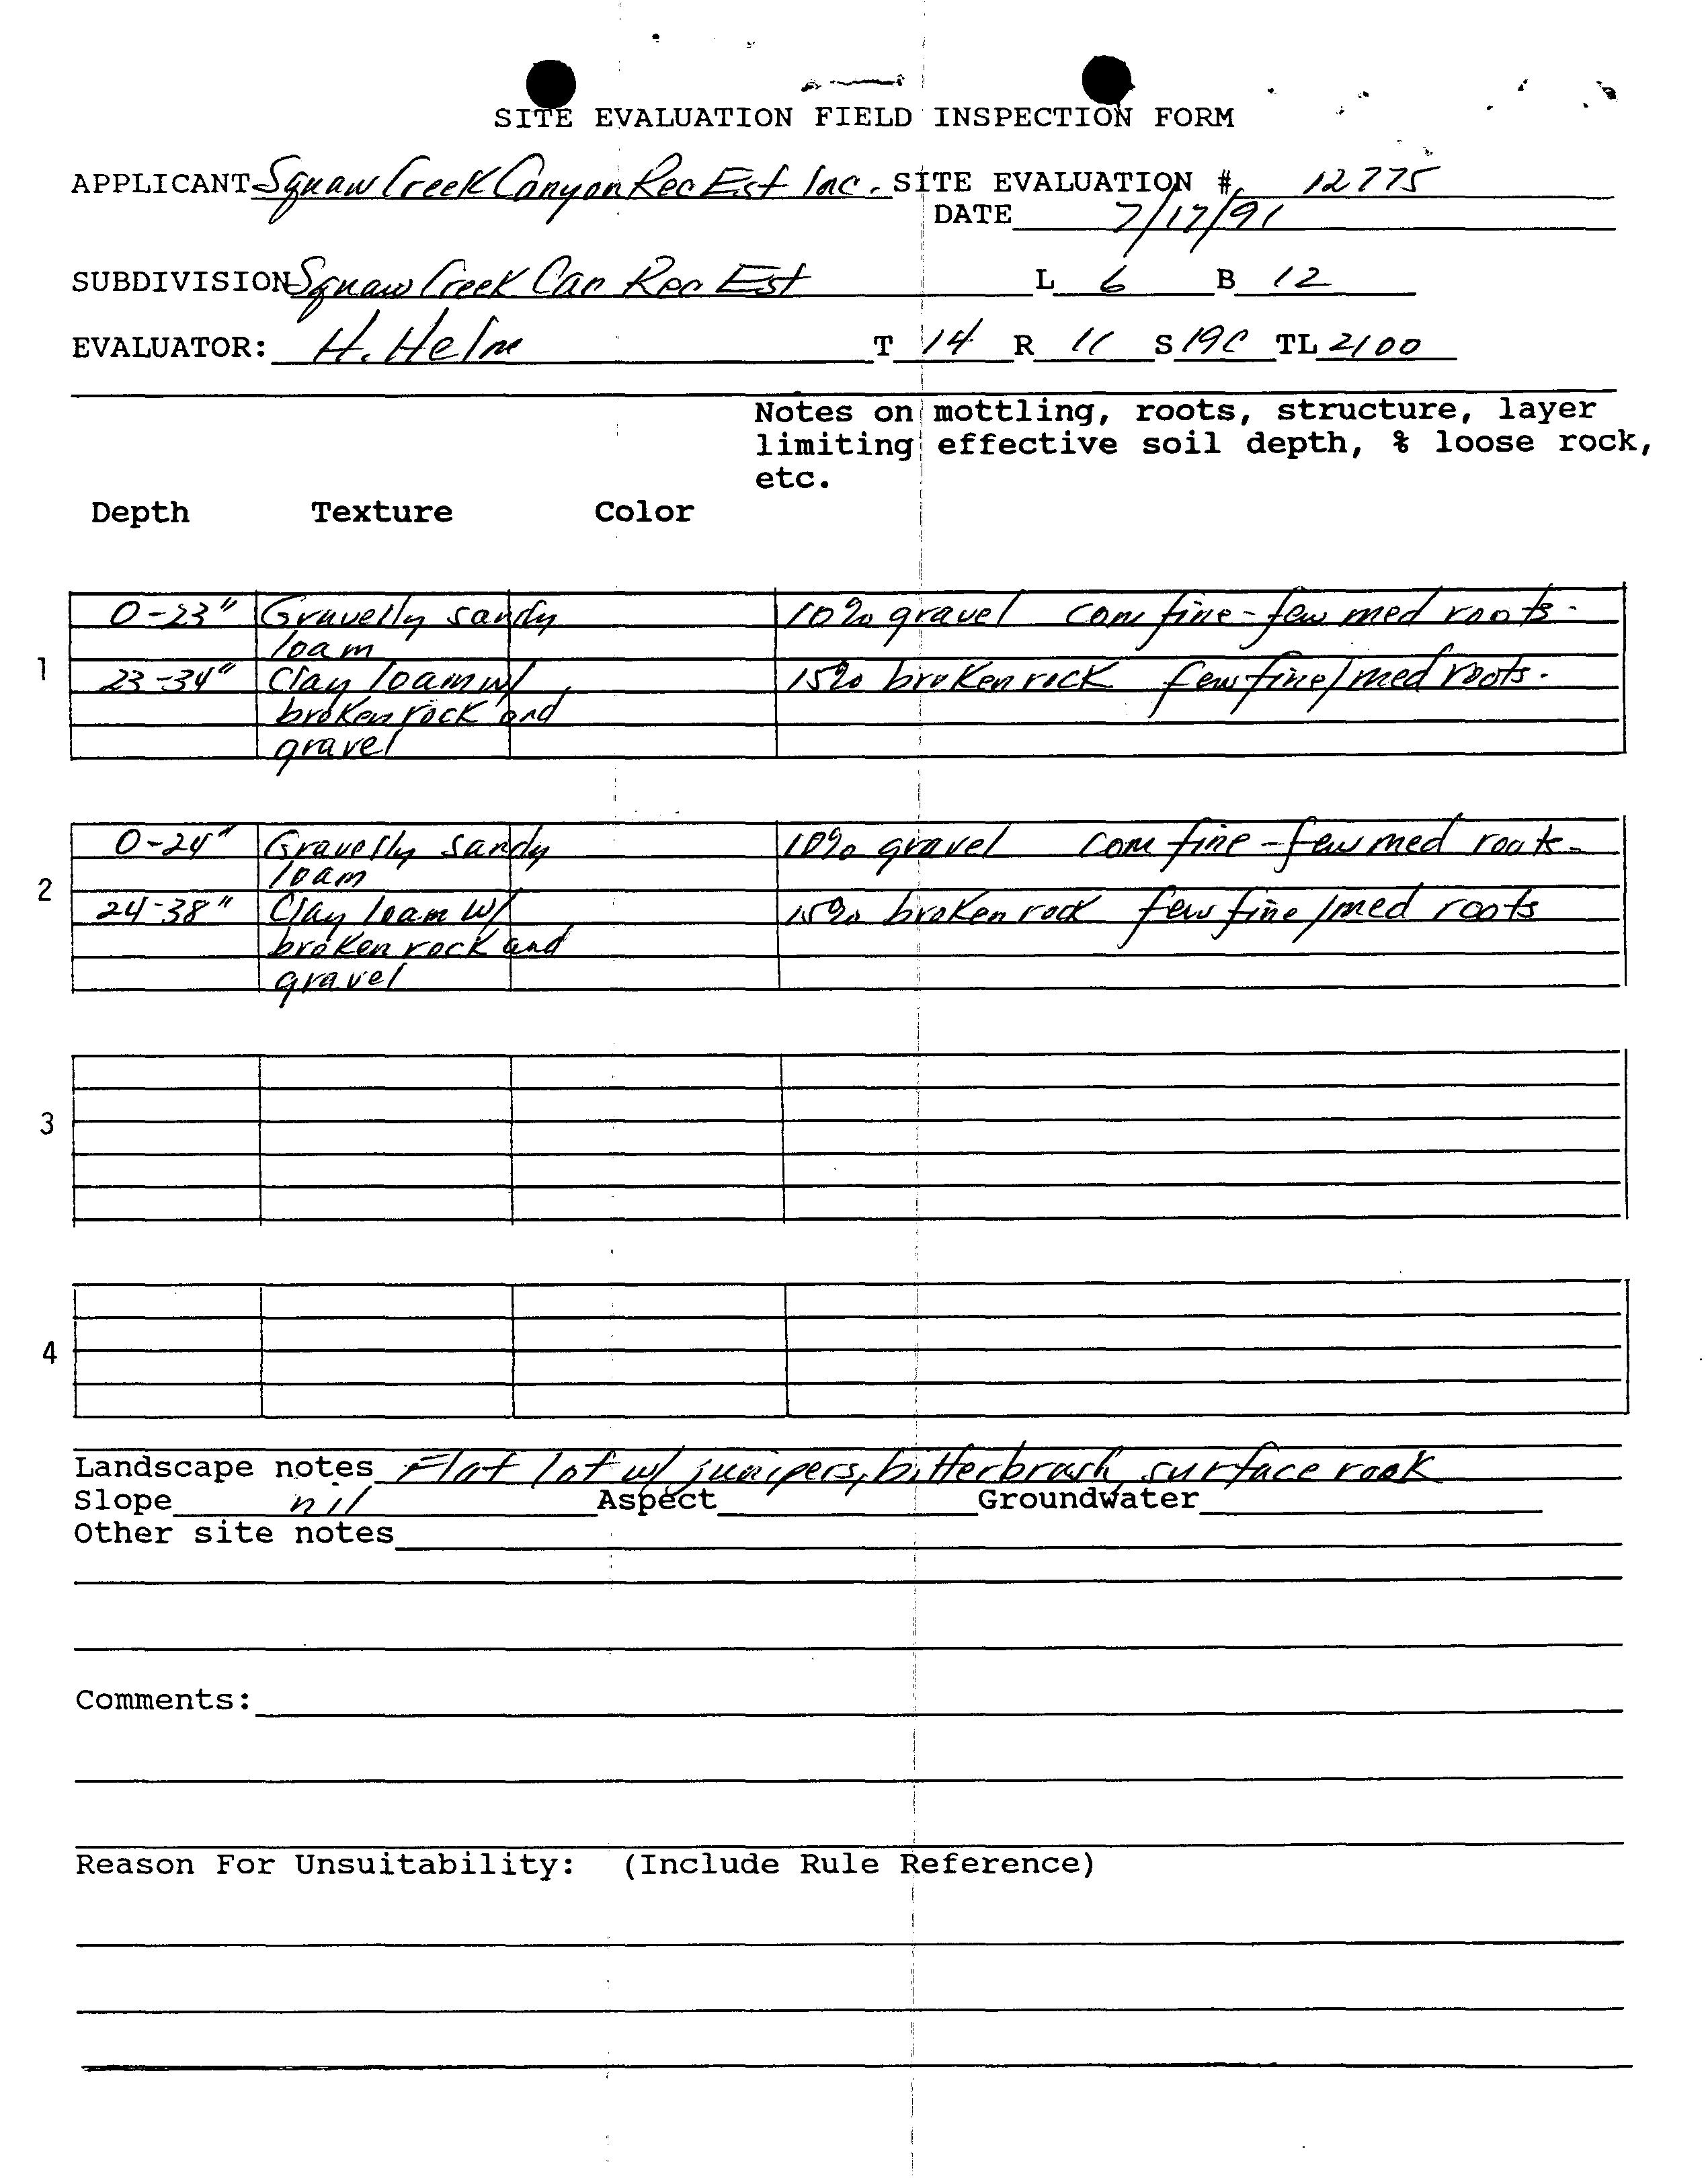 SITE EVALUATION FIELD INSPECTION FORM
APPLICANT Squaw Creek Canyon Rec Est Inc. SITE EVALUATION # 12775
DATE 7/17/91
SUBDIVISION Squaw Creek Can Rec Est L 6 B 12
EVALUATOR: H. Helm T 14 R 11 S 19C TL 2100
Notes on mottling, roots, structure, layer
limiting effective soil depth, % loose rock,
etc.
Depth Texture Color
0-23" Gravelly sandy 10% gravel com fine - few med roots -
loam
1 23-34" Clay loam w/ 15% broken rock few fine/med roots.
broken rock and
gravel
0-24" Gravelly sandy 10% gravel com fine - few med roots -
loam
2
24-38" Clay loam w/ 15% broken rock few fine/med roots
broken rock and
gravel
3
4
Landscape notes Flat lot w/ junipers, bitterbrush, surface rock
Slope nil Aspect Groundwater
Other site notes
Comments:
Reason For Unsuitability: (Include Rule Reference)